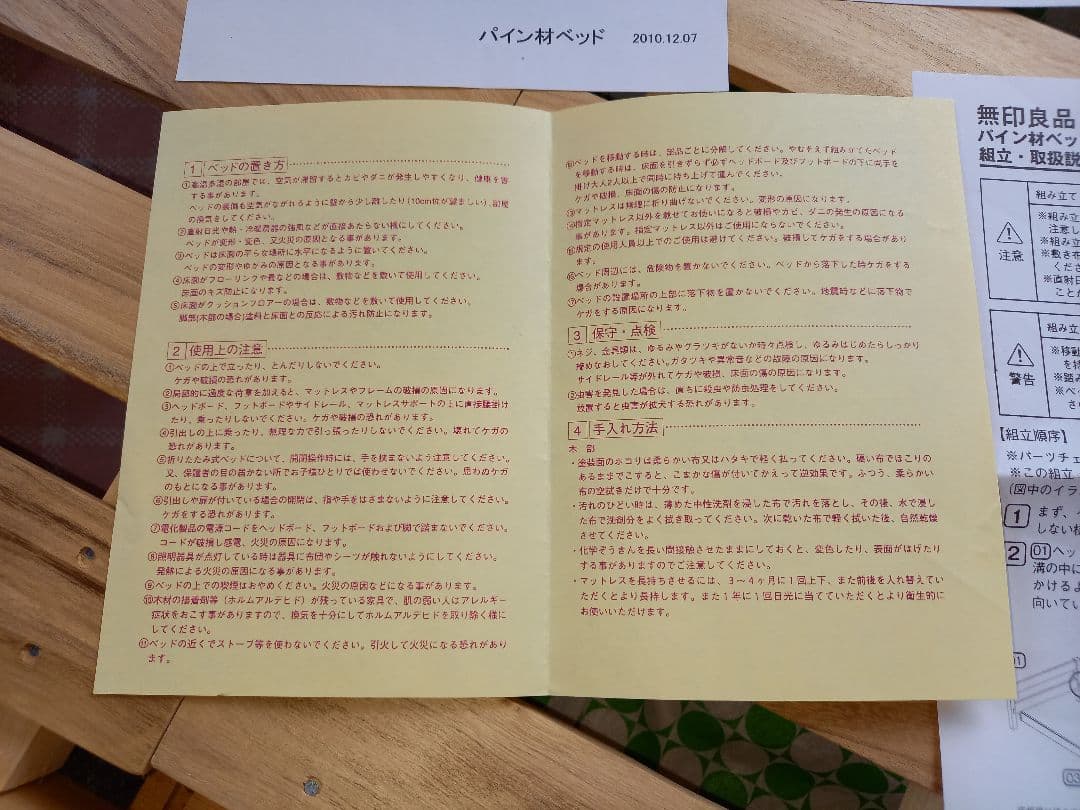 パイン材ベッド 2010.12.07
1 ベッドの置き方
①高温多湿の部屋では、空気が滞留するとカビやダニが発生しやすくなり、健康を害
する事があります。
ベッドの裏側も空気がながれるように壁から少し離したり(10cm位が望ましい)、部屋
の換気をしてください。
②直射日光や熱・冷暖房器の強風などが直接あたらない様にしてください。
ベッドが変形・変色、又火災の原因となる事があります。
③ベッドは床面の平らな場所に水平になるように置いてください。
ベッドの変形やゆがみの原因となる事があります。
④床面がフローリングや畳などの場合は、敷物などを敷いて使用してください。
床面のキズ防止になります。
⑤床面がクッションフロアーの場合は、敷物などを敷いて使用してください。
脚部(木部の場合)塗料と床面との反応による汚れ防止になります。
2 使用上の注意
①ベッドの上で立ったり、とんだりしないでください。
ケガや破損の恐れがあります。
②局部的に過度な荷重を加えると、マットレスやフレームの破損の原因になります。
③ヘッドボード、フットボードやサイドレール、マットレスサポートの上に直接腰掛け
たり、乗ったりしないでください。ケガや破損の恐れがあります。
④引出しの上に乗ったり、無理な力で引っ張ったりしないでください。壊れてケガの
恐れがあります。
⑤折りたたみ式ベッドについて、開閉操作時には、手を挟まないよう注意してください。
又、保護者の目の届かない所でお子様ひとりでは使わせないでください。思わぬケガ
のもとになる事があります。
⑥引出しや扉が付いている場合の開閉は、指や手をはさまないように注意してください。
ケガをする恐れがあります。
⑦電化製品の電源コードをヘッドボード、フットボードおよび脚で踏まないでください。
コードが破損し感電、火災の原因になります。
⑧照明器具が点灯している時は器具に布団やシーツが触れないようにしてください。
発熱による火災の原因になる事があります。
⑨ベッドの上での喫煙はおやめください。火災の原因などになる事があります。
⑩木材の接着剤等(ホルムアルデヒド)が残っている家具で、肌の弱い人はアレルギー
症状をおこす事がありますので、換気を十分にしてホルムアルデヒドを取り除く様に
してください。
⑪ベッドの近くでストーブ等を使わないでください。引火して火災になる恐れがあり
ます。
⑫ベッドを移動する時は、部品ごとに分解してください。やむをえず組み立てたベッド
を移動する時は、床面を引きずらず必ずヘッドボード及びフットボードの下に両手を
掛け大人2人以上で同時に持ち上げて運んでください。
ケガや破損、床面の傷の防止になります。
⑬マットレスは無理に折り曲げないでください。変形の原因になります。
⑭指定マットレス以外を載せてお使いになると破損やカビ、ダニの発生の原因になる
事があります。指定マットレス以外はご使用にならないでください。
⑮規定の使用人員以上でのご使用は避けてください。破損してケガをする場合があり
ます。
⑯ベッド周辺には、危険物を置かないでください。ベッドから落下した時ケガをする
場合があります。
⑰ベッドの設置場所の上部に落下物を置かないでください。地震時などに落下物で
ケガをする原因になります。
3 保守・点検
①ネジ、金具類は、ゆるみやグラツキがないか時々点検し、ゆるみはじめたらしっかり
締めなおしてください。ガタツキや異常音などの故障の原因になります。
サイドレール等が外れてケガや破損、床面の傷の原因になります。
②虫害を発見した場合は、直ちに殺虫や防虫処理をしてください。
放置すると虫害が拡大する恐れがあります。
4 手入れ方法
木 部
・塗装面のホコリは柔らかい布又はハタキで軽く払ってください。硬い布でほこりの
あるままでこすると、こまかな傷が付いてかえって逆効果です。ふつう、柔らかい
布の空拭きだけで十分です。
・汚れのひどい時は、薄めた中性洗剤を浸した布で汚れを落とし、その後、水で浸し
た布で洗剤分をよく拭き取ってください。次に乾いた布で軽く拭いた後、自然乾燥
させてください。
・化学ぞうきんを長い間接触させたままにしておくと、変色したり、表面がはげたり
する事がありますのでご注意してください。
・マットレスを長持ちさせるには、3〜4ヶ月に1回上下、また前後を入れ替えてい
ただくとより長持します。また1年に1回日光に当てていただくとより衛生的に
お使いいただけます。
無印良品
パイン材ベッ
組立・取扱説
注意
組み立て
※組み立
注意し
※組み立
※敷き布
くださ
※直射日
ことが
警告
組み立
※移動
を持
※踏み
※ベ
さ
【組立順序】
※パーツチェ
※この組立
(図中のイラ
1 まず、
しない
2 01ヘッ
溝の中に
かけるよ
向いてい
01
03